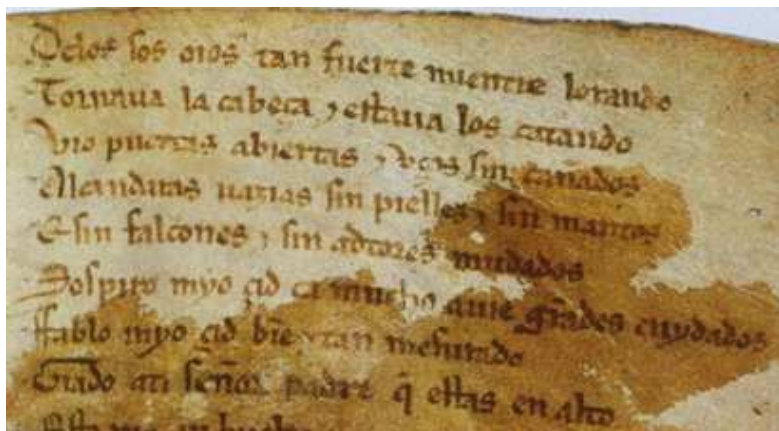 Delos sos oios tan fuerte mientre lorando
Tornaua la cabeça ⁊ estaua los catando
Vio puertas abiertas ⁊ vços sin cañados
Alcandaras uazias sin pielles ⁊ sin mantos
E sin falcones ⁊ sin adtores mudados
Sospiro myo çid ca mucho auie grãdes cuydados
Ffablo myo çid biẽ ⁊ tan mesurado
Grado ati señor padre q̃ estas en alto